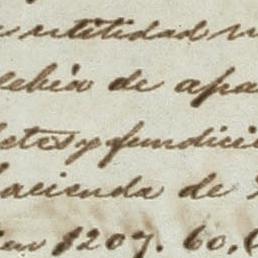 entidad
debia de apa
letes y fundici
hacienda de
1207. 60,